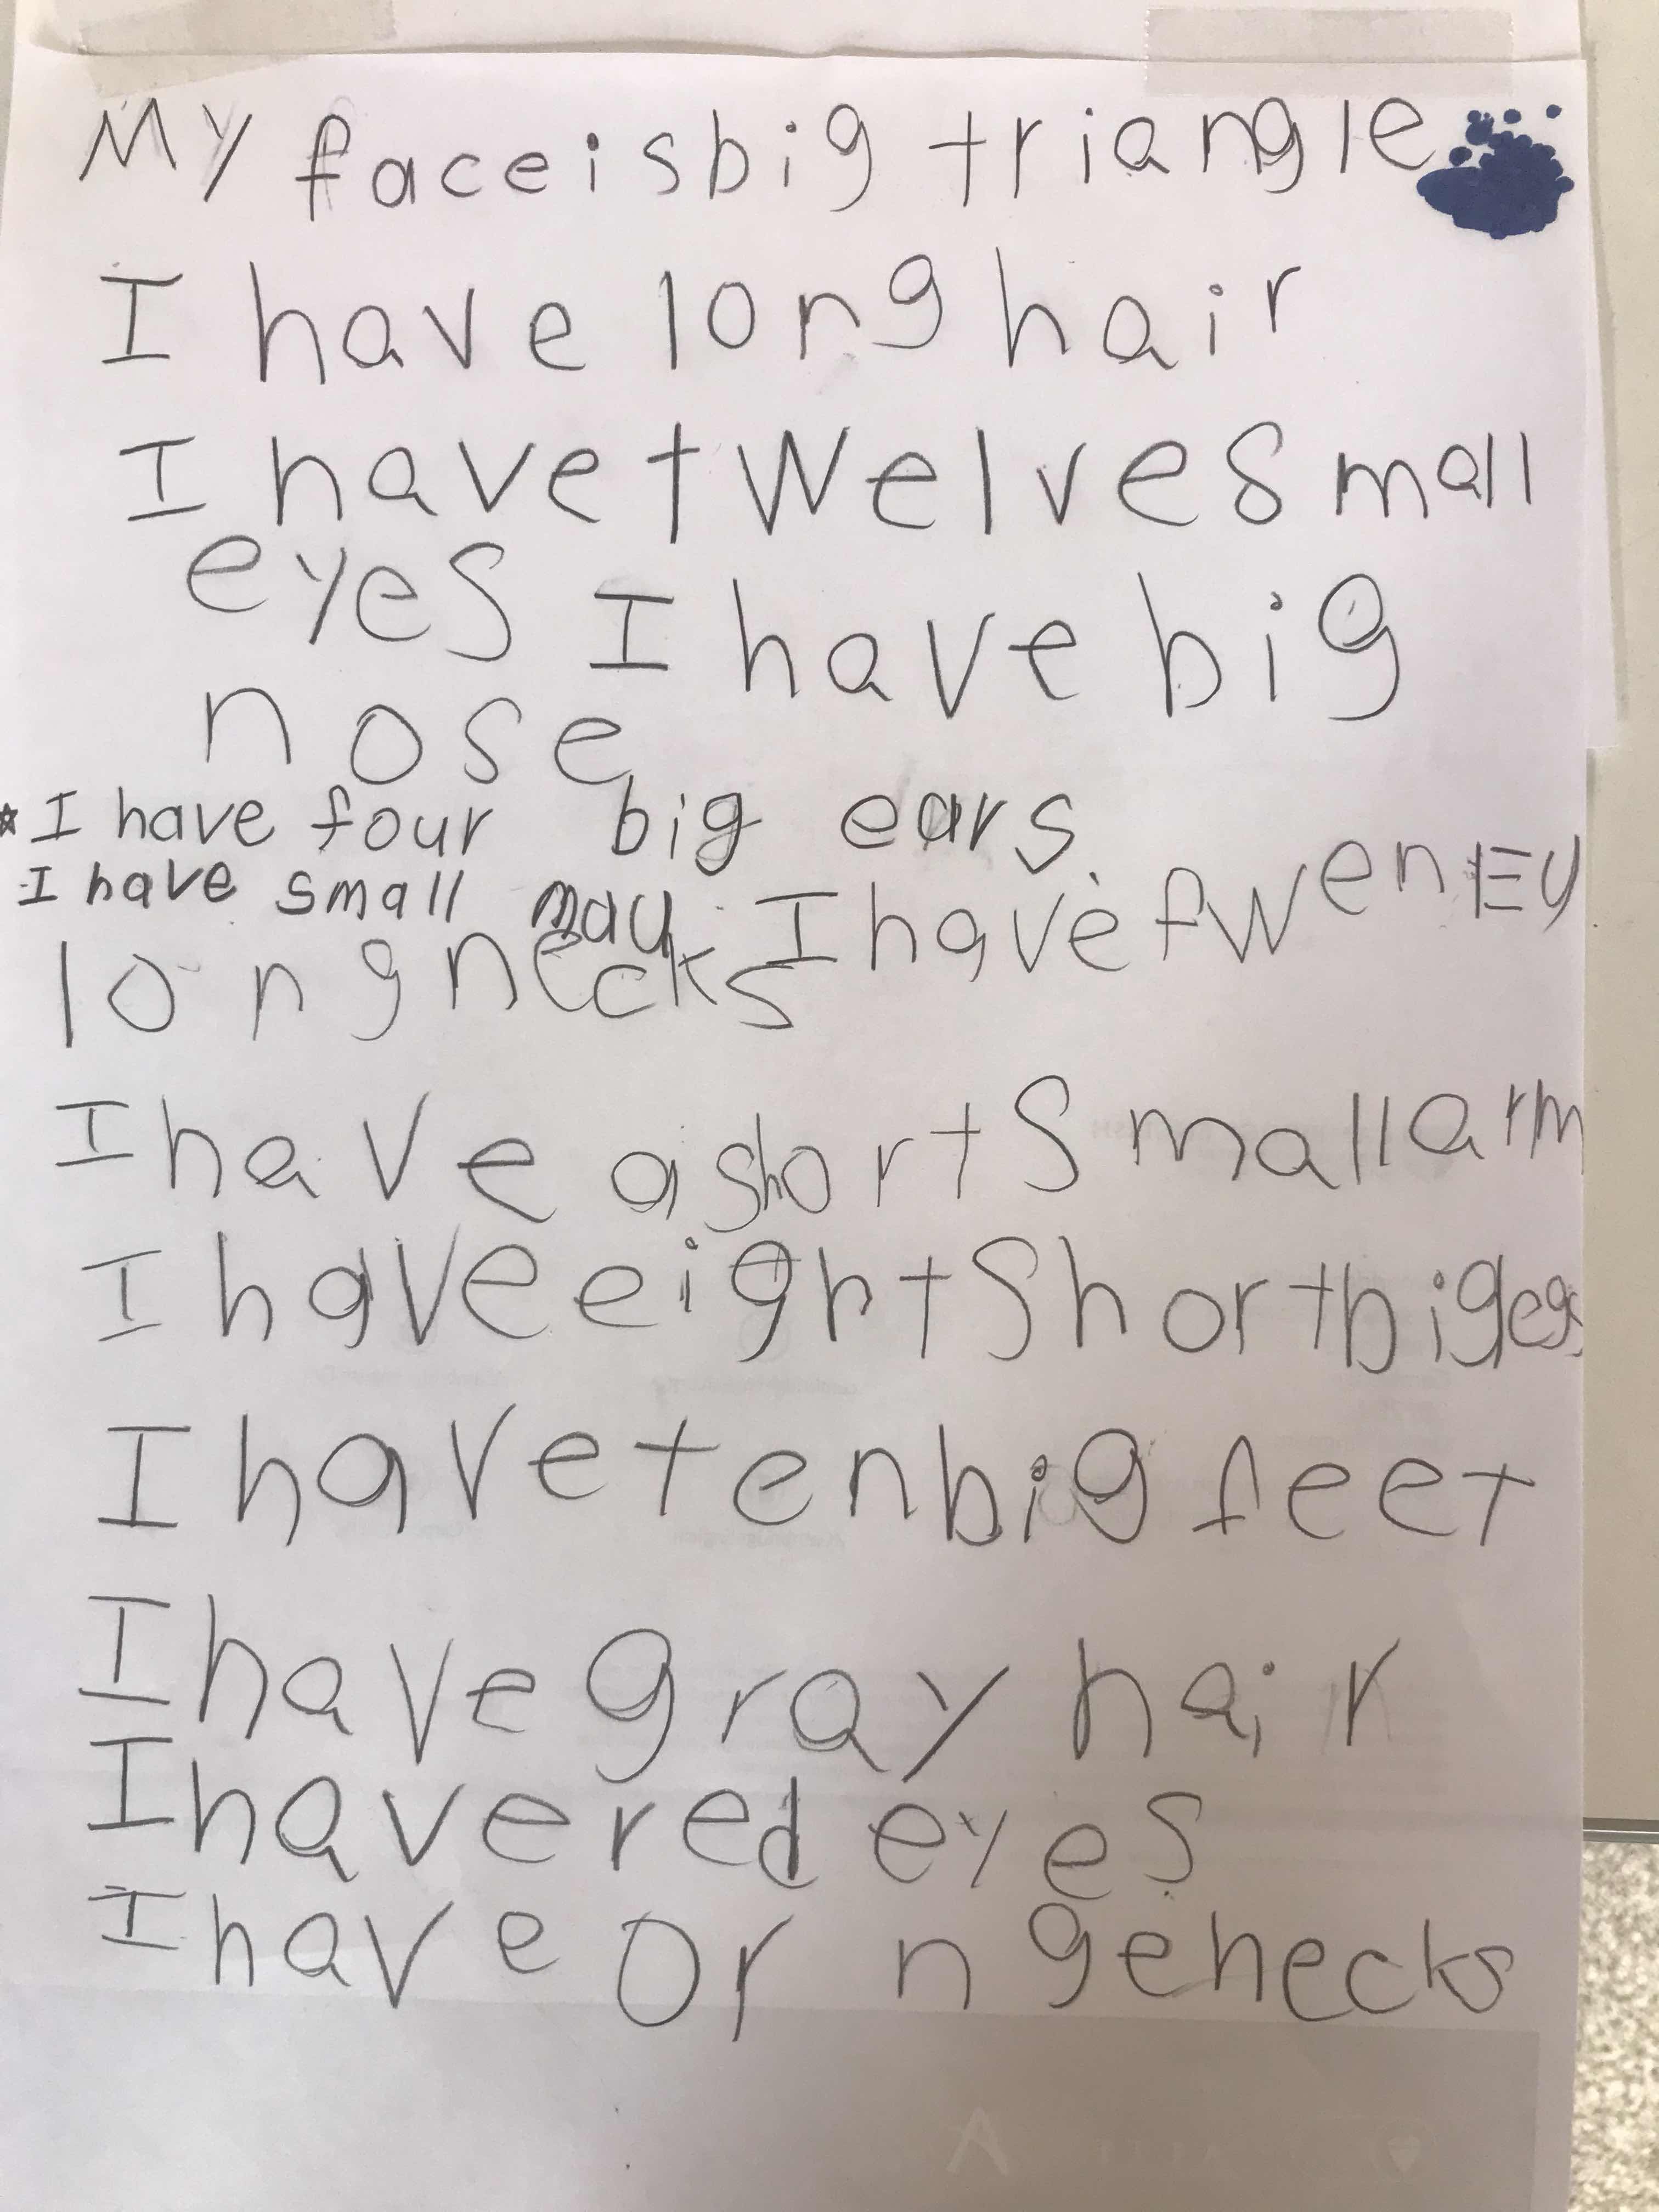 My face is big triangle
I have long hair
I have twelve small
eyes I have big
nose
* I have four big ears
I have small mau I have twenty
long necks
I have a short small arm
I have eight short big
I have ten big feet
I have gray hair
I have red eyes
I have ornge necks